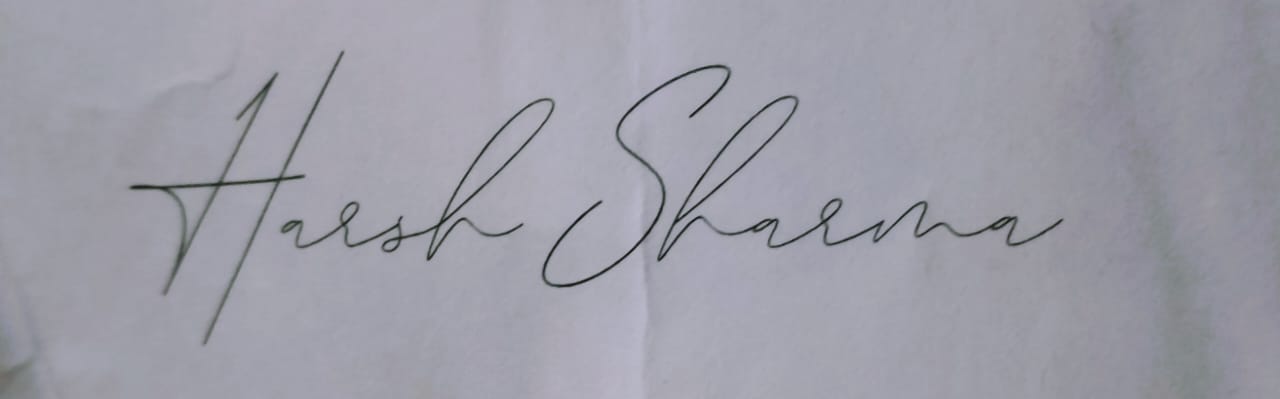 Harsh Sharma